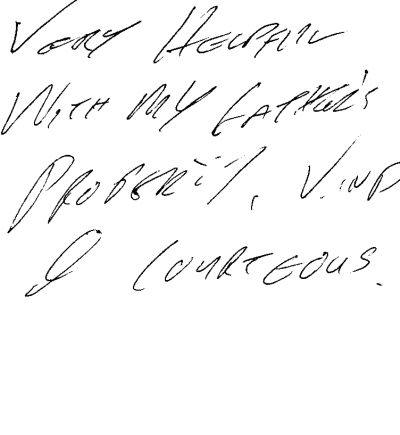 VERY HELPFUL
WITH MY FATHER'S
PROPERTY, KIND
& COURTEOUS.